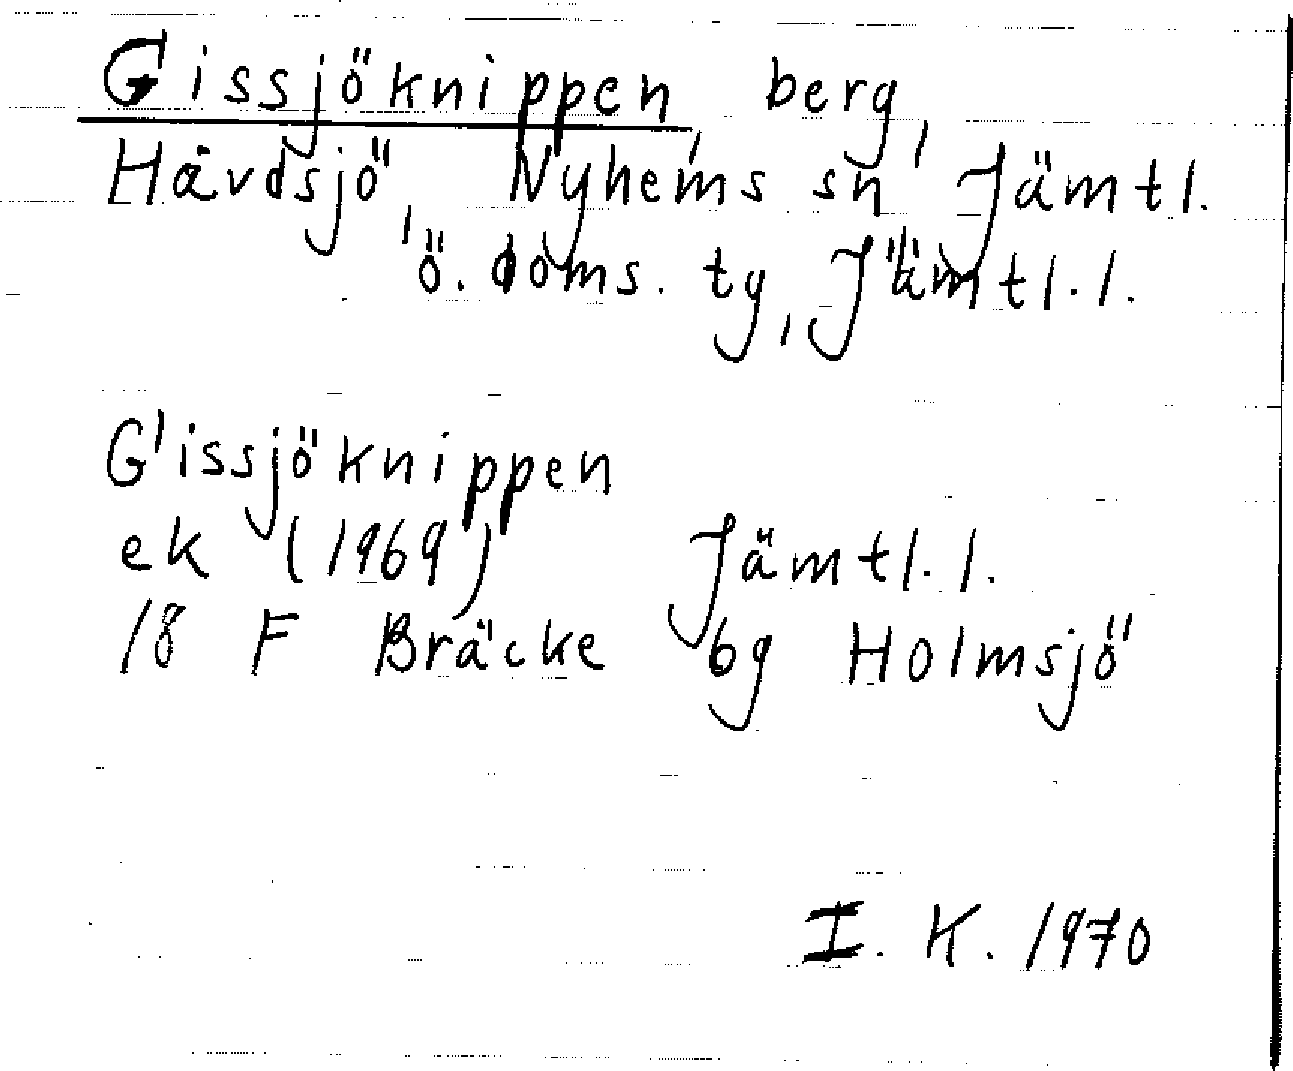 Gissjöknippen, berg,
Håvdsjö, Nyhems sn, Jämtl.
ö. doms. ty, Jämtl. l.
Gissjöknippen
ek (1969) Jämtl. l.
18 F Bräcke 6g Holmsjö
I. K. 1970